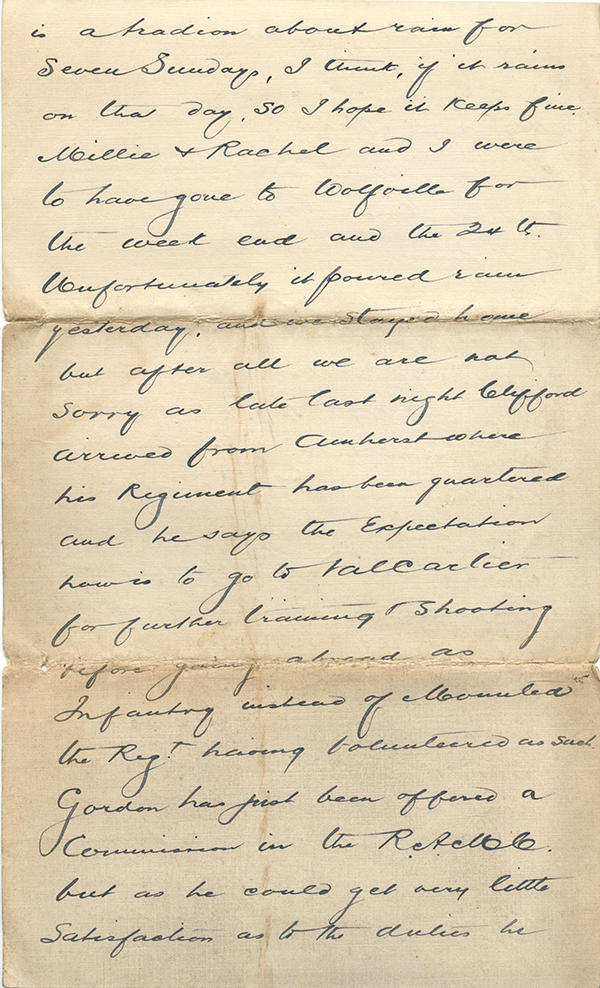 is a tradion about rain for
Seven Sundays, I think, if it rains
on that day, so I hope it keeps fine.
Millie & Rachel and I were
to have gone to Wolfville for
the week end and the 24th.
Unfortunately it poured rain
yesterday, and we stayed home
but after all we are not
sorry as late last night Clifford
arrived from Amherst where
his Regiment has been quartered
and he says the Expectation
now is to go to ValCartier
for further training & shooting
before going abroad as
Infantry instead of Mounted
the Regt having volunteered as such.
Gordon has just been offered a
Commission in the R.A.M.C.
but as he could get very little
Satisfaction as to the duties he